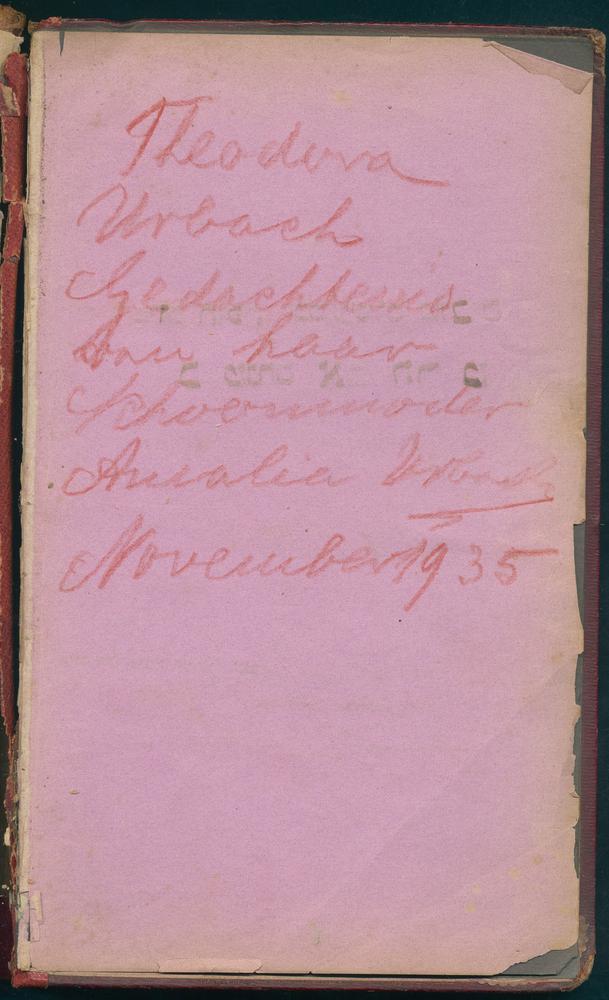 Theodora
Urbach
Gedachtenis
van haar
Schoonmoder
Amalia Urbach
November 1935